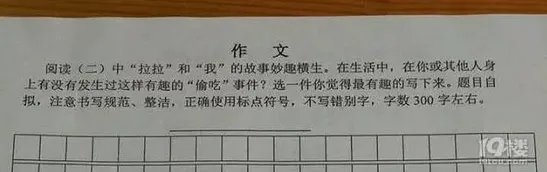 作 文
阅读（二）中“拉拉”和“我”的故事妙趣横生。在生活中，在你或其他人身
上有没有发生过这样有趣的“偷吃”事件？选一件你觉得最有趣的写下来。题目自
拟，注意书写规范、整洁，正确使用标点符号，不写错别字，字数 300 字左右。
19楼
19lou.com